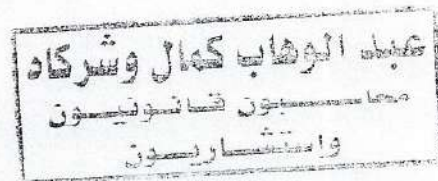 عبد الوهاب كمال وشركاه
محاسبون قانونيون
واستشاريون